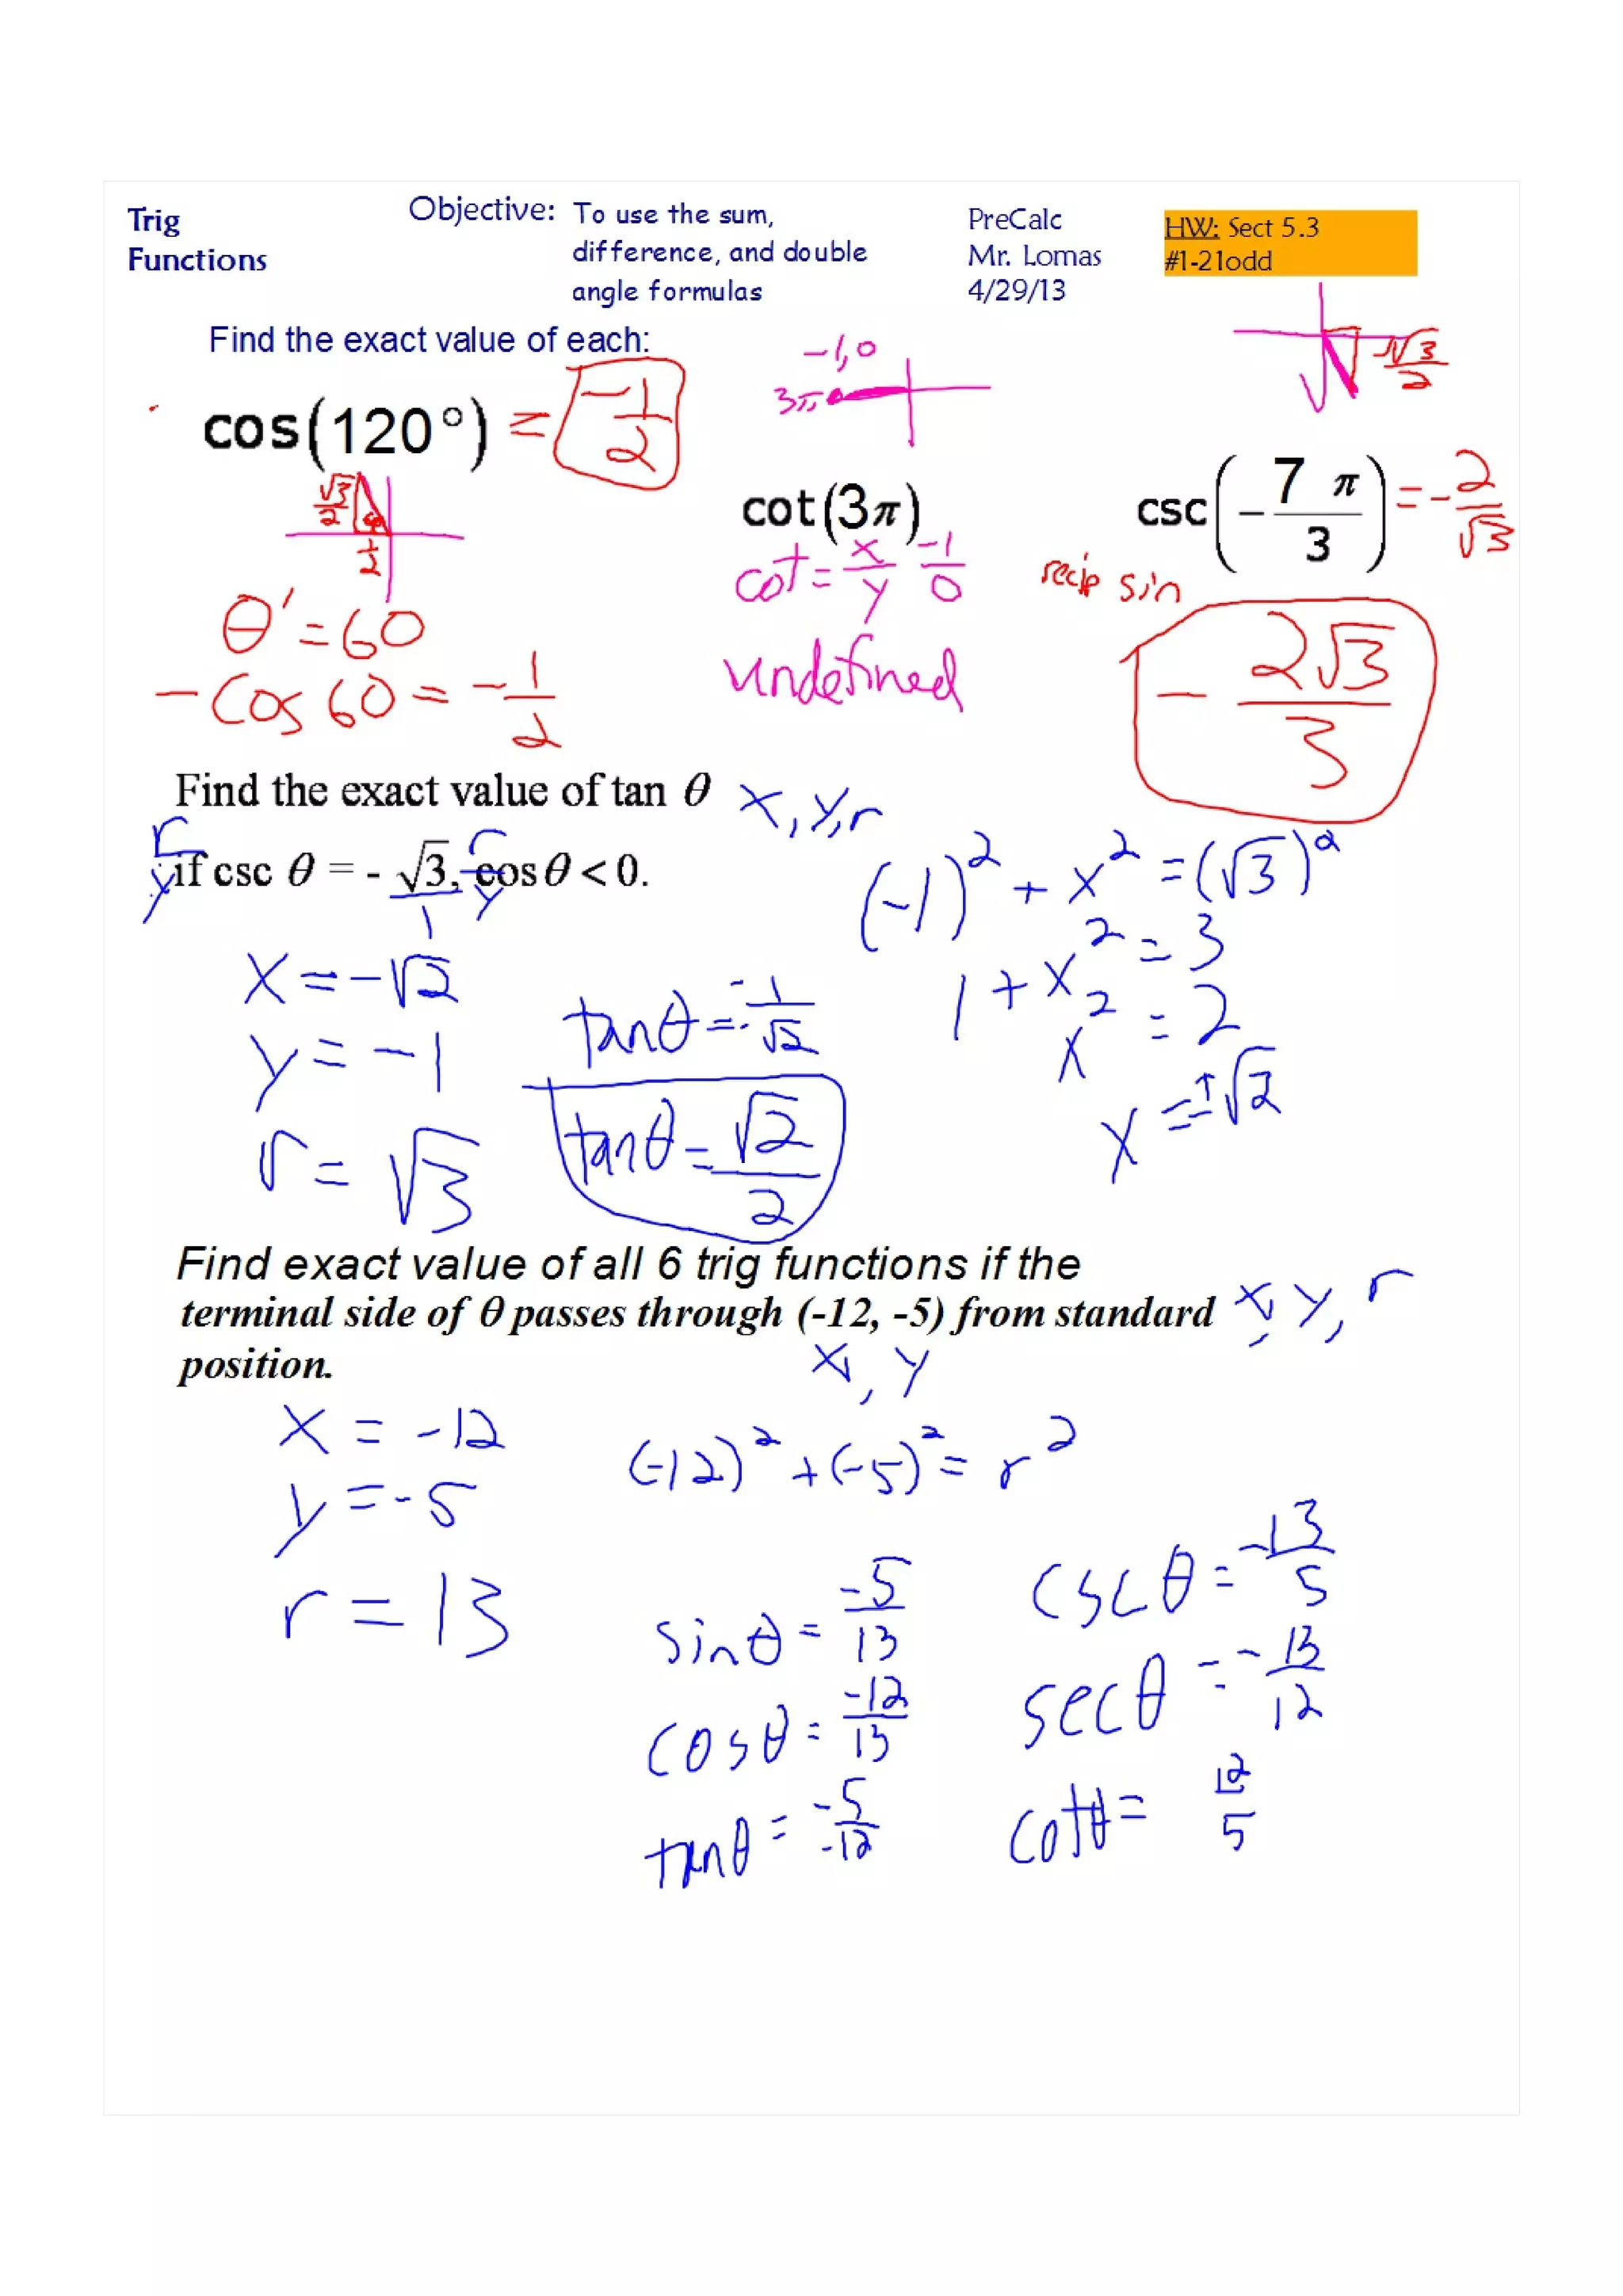 Trig
Functions
Objective: To use the sum,
difference, and double
angle formulas
PreCalc
Mr. Lomas
4/29/13
HW: Sect 5.3
#1-21odd
Find the exact value of each:
cos(120°) = -1/2
√3/2
1/2
θ' = 60
-cos 60 = -1/2
-1,0
3π
cot(3π)
cot = x/y -1/0
undefined
-√3/2
csc(-7π/3) = -2/√3
recip sin
-2√3/3
Find the exact value of tan θ
x, y, r
if csc θ = -√3, cos θ < 0.
r/y
r/y
1
x = -√2
y = -1
r = √3
tanθ = -1/-√2
tanθ = √2/2
(-1)² + x² = (√3)²
1 + x² = 3
x² = 2
x = ±√2
Find exact value of all 6 trig functions if the
terminal side of θ passes through (-12, -5) from standard
position.
x, y, r
x, y
x = -12
y = -5
r = 13
(-12)² + (-5)² = r²
sinθ = -5/13
cosθ = -12/13
tanθ = -5/-12
cscθ = -13/5
secθ = -13/12
cotθ = 12/5